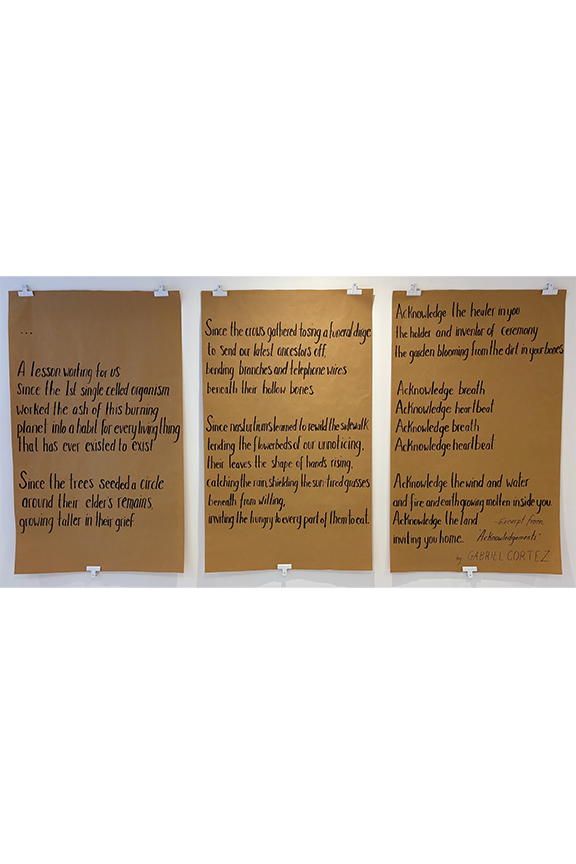 ...
A lesson waiting for us
Since the 1st single celled organism
worked the ash of this burning
planet into a habit for every living thing
that has ever existed to exist
Since the trees seeded a circle
around their elder's remains,
growing taller in their grief
Since the crows gathered to sing a funeral dirge
to send our latest ancestors off,
bending branches and telephone wires
beneath their hollow bones
Since nasturtiums learned to rewild the sidewalk
lending the flowerbeds of our unnoticing,
their leaves the shape of hands rising,
catching the rain, shielding the sun-tired grasses
beneath from wilting,
inviting the hungry to every part of them to eat.
Acknowledge the healer in you
the holder and inventor of ceremony
the garden blooming from the dirt in your bones
Acknowledge breath
Acknowledge heartbeat
Acknowledge breath
Acknowledge heartbeat
Acknowledge the wind and water
and fire and earth growing molten inside you.
Acknowledge the land
inviting you home.
-Excerpt from
"Acknowledgements"
by GABRIEL CORTEZ